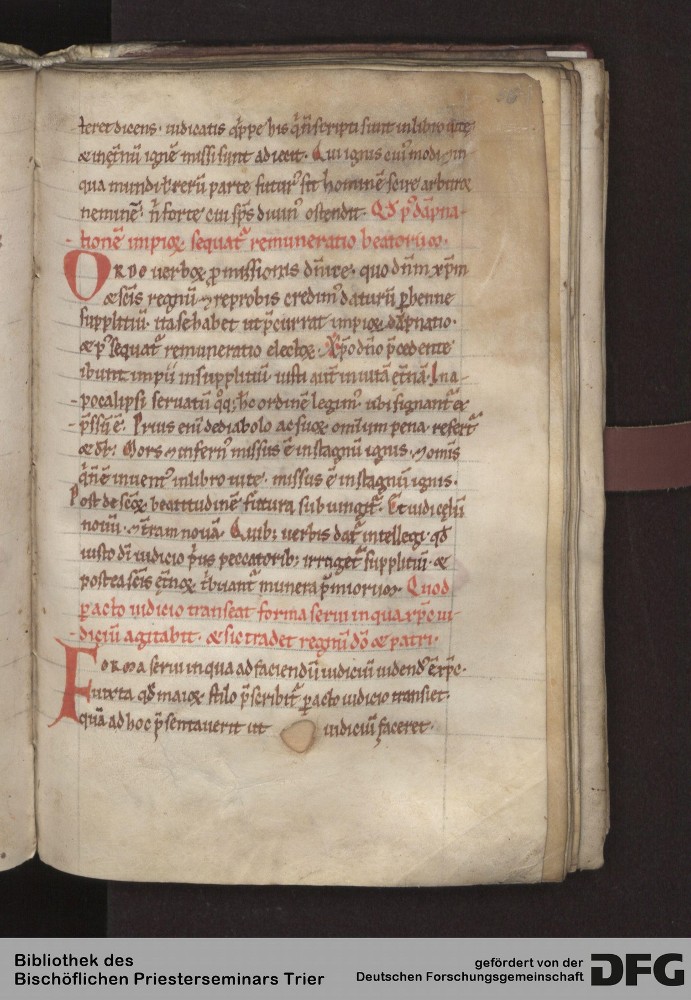 teret dicens · iudicatis qͥppe his q̇ ñ scripti sunt in libro uitę
& in ęt̃nũ ignẽ missi sunt adiecit · Qui ignis cuiꝰ modi ⁊ in
qua mundi ł rerũ parte futurꝰ sit hominẽ scire arbitror
neminẽ · ñ forte cui sp̃s diuinꝰ ostendit · Qđ pꝰ dãpna-
tionẽ impioꝝ sequat᷑ remuneratio beatoruꝝ ·
ORDO uerboꝝ ꝓmissionis dñice · quo dñm xp̃m
& sc̃is regnũ ⁊ reprobis credimꝰ daturũ ꝑhenne
suppliciũ · ita se habet ut p̃currat impioꝝ dãpnatio ·
& pꝰ sequat᷑ remuneratio electoꝝ · Xp̃o dño p̃cedente
ibunt impii in suppliciũ iusti aut̃ in uitã ęt̃nã · In a-
pocalipsi seruatũ q̊q; hc̃ ordinẽ legimꝰ · ubi signant᷑ &
p̃ssũ ẽ · Prius eni de diabolo ac suoꝝ omĩum pena refert᷑
& dr̃ · Mors ⁊ infernꝰ missus ẽ in stagnũ ignis · ⁊ omĩs
q̇ ñ ẽ inuentꝰ in libro uite · missus ẽ in stagnũ ignis ·
Post de sc̃oꝝ beatitudinẽ futura subiungit᷑ · Et uidi cęlũ
nouũ · ⁊ t̃ram nouã · Quib; uerbis dat᷑ intellegi · qđ
iusto di iudicio p̃us peccatorib; irroget᷑ suppliciũ · &
postea sc̃is ęt̃noꝝ t̃buant᷑ munera p̃mioruꝝ · Quod
ꝑacto iudicio transeat forma serui in qua xp̃c iu-
diciũ agitabit · & sic tradet regnũ dõ & patri ·
FORMA serui in qua ad faciendũ iudiciũ uidendꝰ ẽ xp̃c ·
iuxta qđ maioꝝ stilo p̃scribit᷑ ꝑacto iudicio transiet
quã ad hoc p̃sentauerit ut iudiciũ faceret ·
Bibliothek des
Bischöflichen Priesterseminars Trier
gefördert von der
Deutschen Forschungsgemeinschaft
DFG